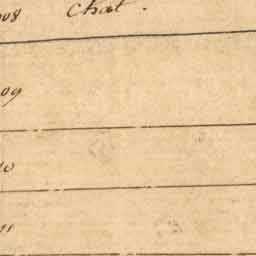 08 Chat.
09
10
11